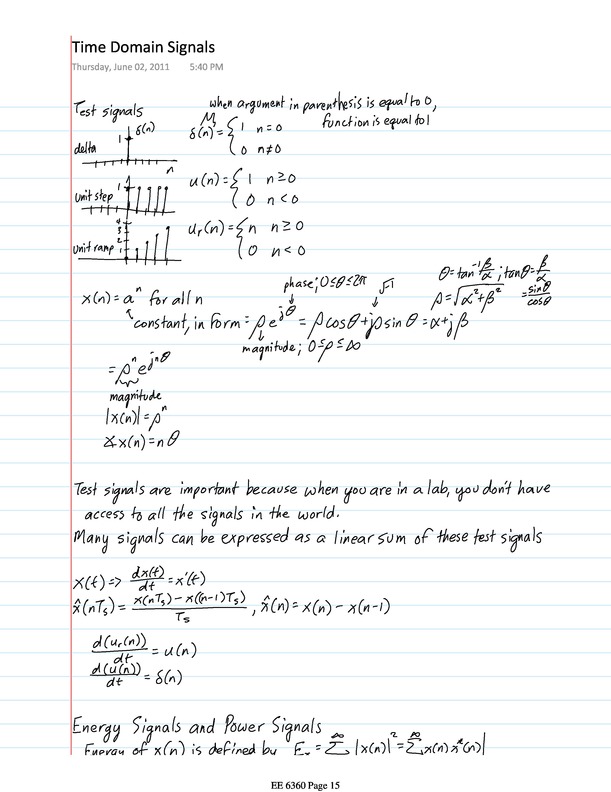 Time Domain Signals
Thursday, June 02, 2011 5:40 PM
Test signals
when argument in parenthesis is equal to 0,
function is equal to 1
delta 1 δ(n) n
δ(n) = { 1 n=0
0 n≠0
unit step 1
u(n) = { 1 n≥0
0 n<0
unit ramp 4 3 2 1
u_r(n) = { n n≥0
0 n<0
x(n) = aⁿ for all n
phase; 0≤θ≤2π
√-1
θ = tan⁻¹ β/α ; tanθ = β/α
ρ = √(α²+β²) = sinθ/cosθ
constant, in form = ρe^{jθ} = ρcosθ + jρsinθ = α + jβ
magnitude; 0≤ρ≤∞
= ρⁿ e^{jnθ}
magnitude
|x(n)| = ρⁿ
∡x(n) = nθ
Test signals are important because when you are in a lab, you don't have
access to all the signals in the world.
Many signals can be expressed as a linear sum of these test signals
x(t) => dx(t)/dt = x'(t)
x̂(nTs) = (x(nTs) - x((n-1)Ts))/Ts , x̂(n) = x(n) - x(n-1)
d(u_r(n))/dt = u(n)
d(u(n))/dt = δ(n)
Energy Signals and Power Signals
Energy of x(n) is defined by E = ∑^∞ |x(n)|² = ∑^∞ x(n) x*(n)|
EE 6360 Page 15